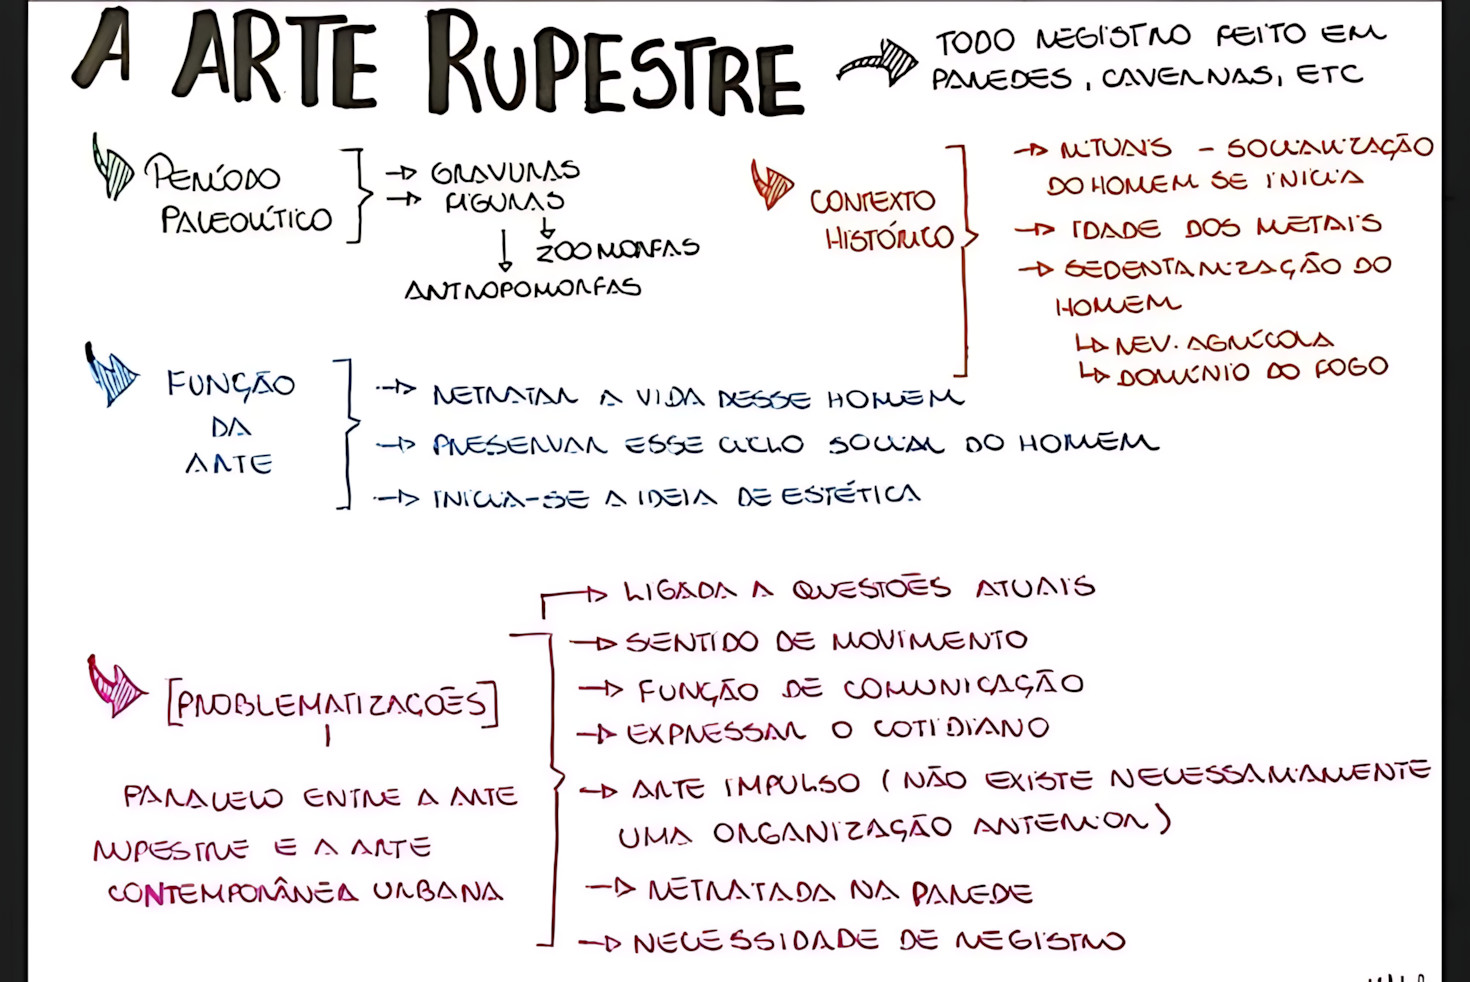 A ARTE RUPESTRE
TODO REGISTRO FEITO EM
PAREDES, CAVERNAS, ETC
PERÍODO
PALEOLÍTICO
GRAVURAS
FIGURAS
ZOOMORFAS
ANTROPOMORFAS
CONTEXTO
HISTÓRICO
RITUAIS - SOCIALIZAÇÃO
DO HOMEM SE INICIA
IDADE DOS METAIS
SEDENTARIZAÇÃO DO
HOMEM
REV. AGRÍCOLA
DOMÍNIO DO FOGO
FUNÇÃO
DA
ARTE
RETRATAR A VIDA DESSE HOMEM
PRESERVAR ESSE CICLO SOCIAL DO HOMEM
INICIA-SE A IDEIA DE ESTÉTICA
[PROBLEMATIZAÇÕES]
PARALELO ENTRE A ARTE
RUPESTRE E A ARTE
CONTEMPORÂNEA URBANA
LIGADA A QUESTÕES ATUAIS
SENTIDO DE MOVIMENTO
FUNÇÃO DE COMUNICAÇÃO
EXPRESSAR O COTIDIANO
ARTE IMPULSO (NÃO EXISTE NECESSARIAMENTE
UMA ORGANIZAÇÃO ANTERIOR)
RETRATADA NA PAREDE
NECESSIDADE DE REGISTRO